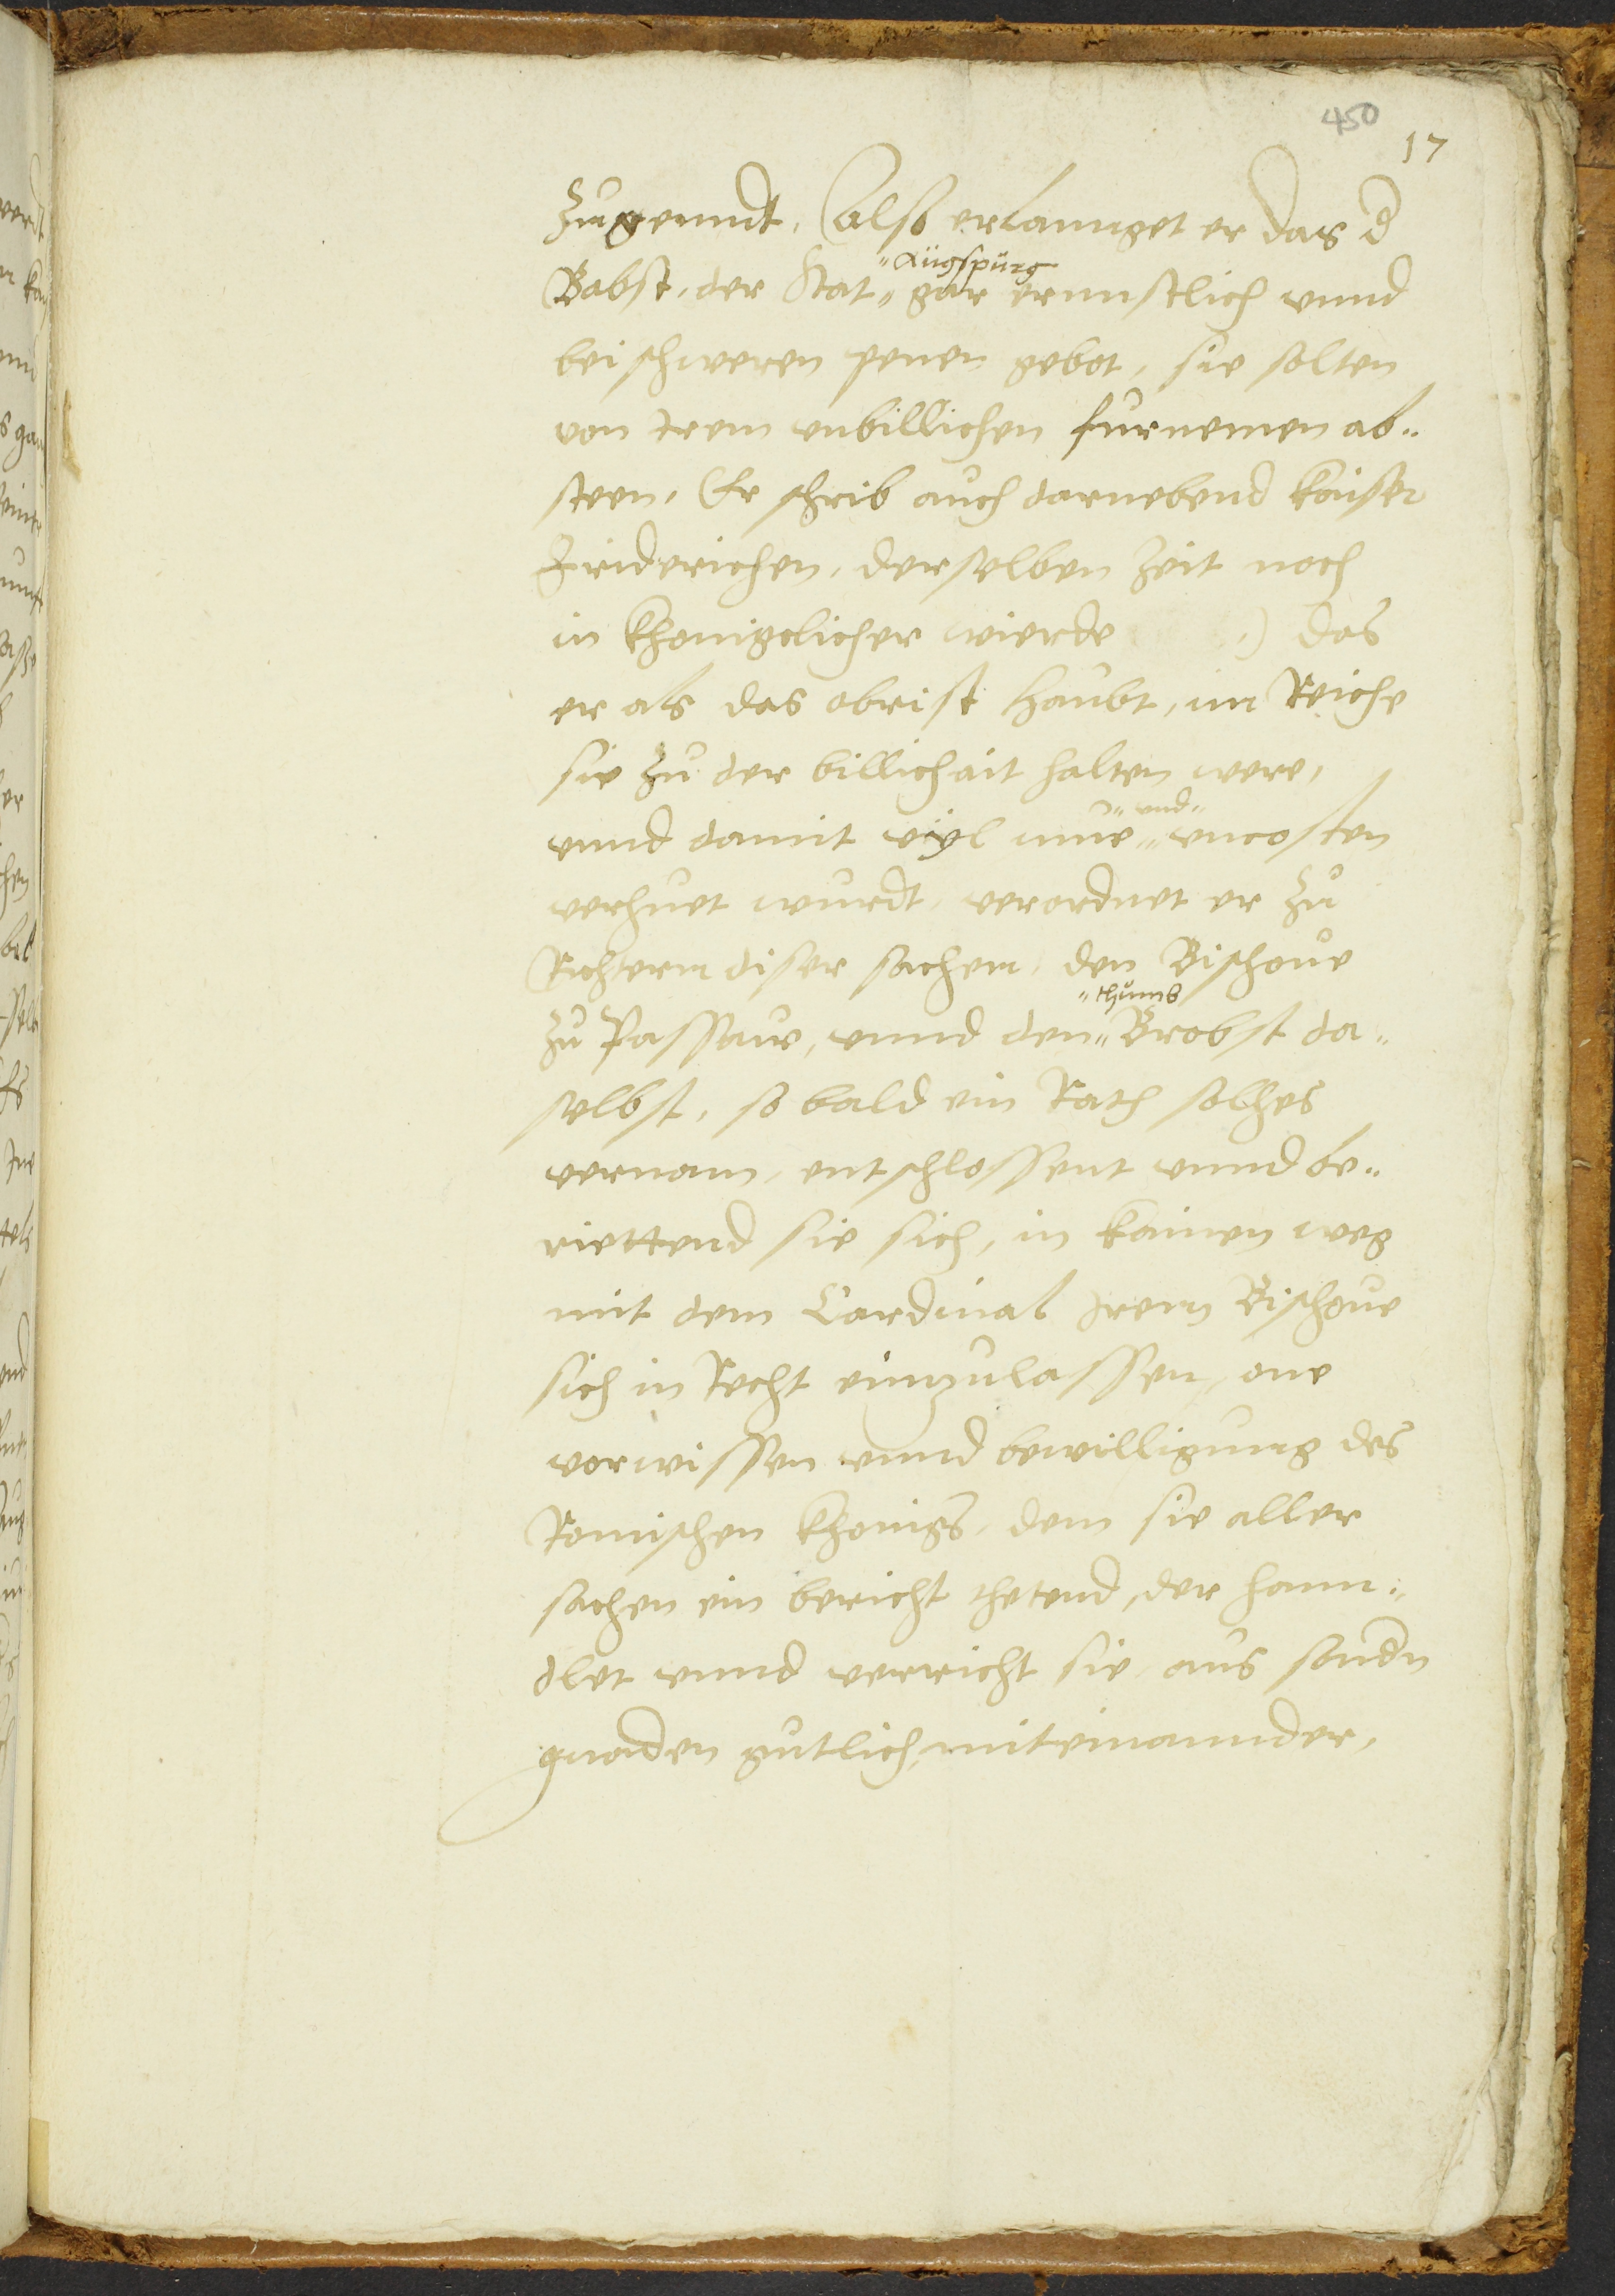 450
17
zugeenndt, Also erlannget er das d
Babst, der Stat "Augspurg" gar ernnstlich unnd
bei schweren penen gebot, sie solten
von irem unbillichen furnemen ab„
steen, Er schrib auch darnebend kaiser
Friderichen, derselben zeit noch
in khoniglicher wierde ,) das
er als das obrist haubt, im Reiche
sie zu der billichait halten were,
unnd damit viyl mue "und" uncosten
verhuet wurdt, verordnet er zu
Richtern diser sachen, den Bischove
zu Passaw, unnd den "thumb" Brobst da„
selbst, so bald ein Rath solhes
vernam, entschlossent unnd be„
riettend sie sich, in kainen weg
mit dem Cardinal irem Bischove
sich in Recht einzulassen, one
vorwissen unnd bewilligung des
Romischen khonigs, dem sie aller
sachen ein bericht thetend, der hann„
dlet unnd verricht sie, aus sondn
gnaden gutlich, miteinannder,